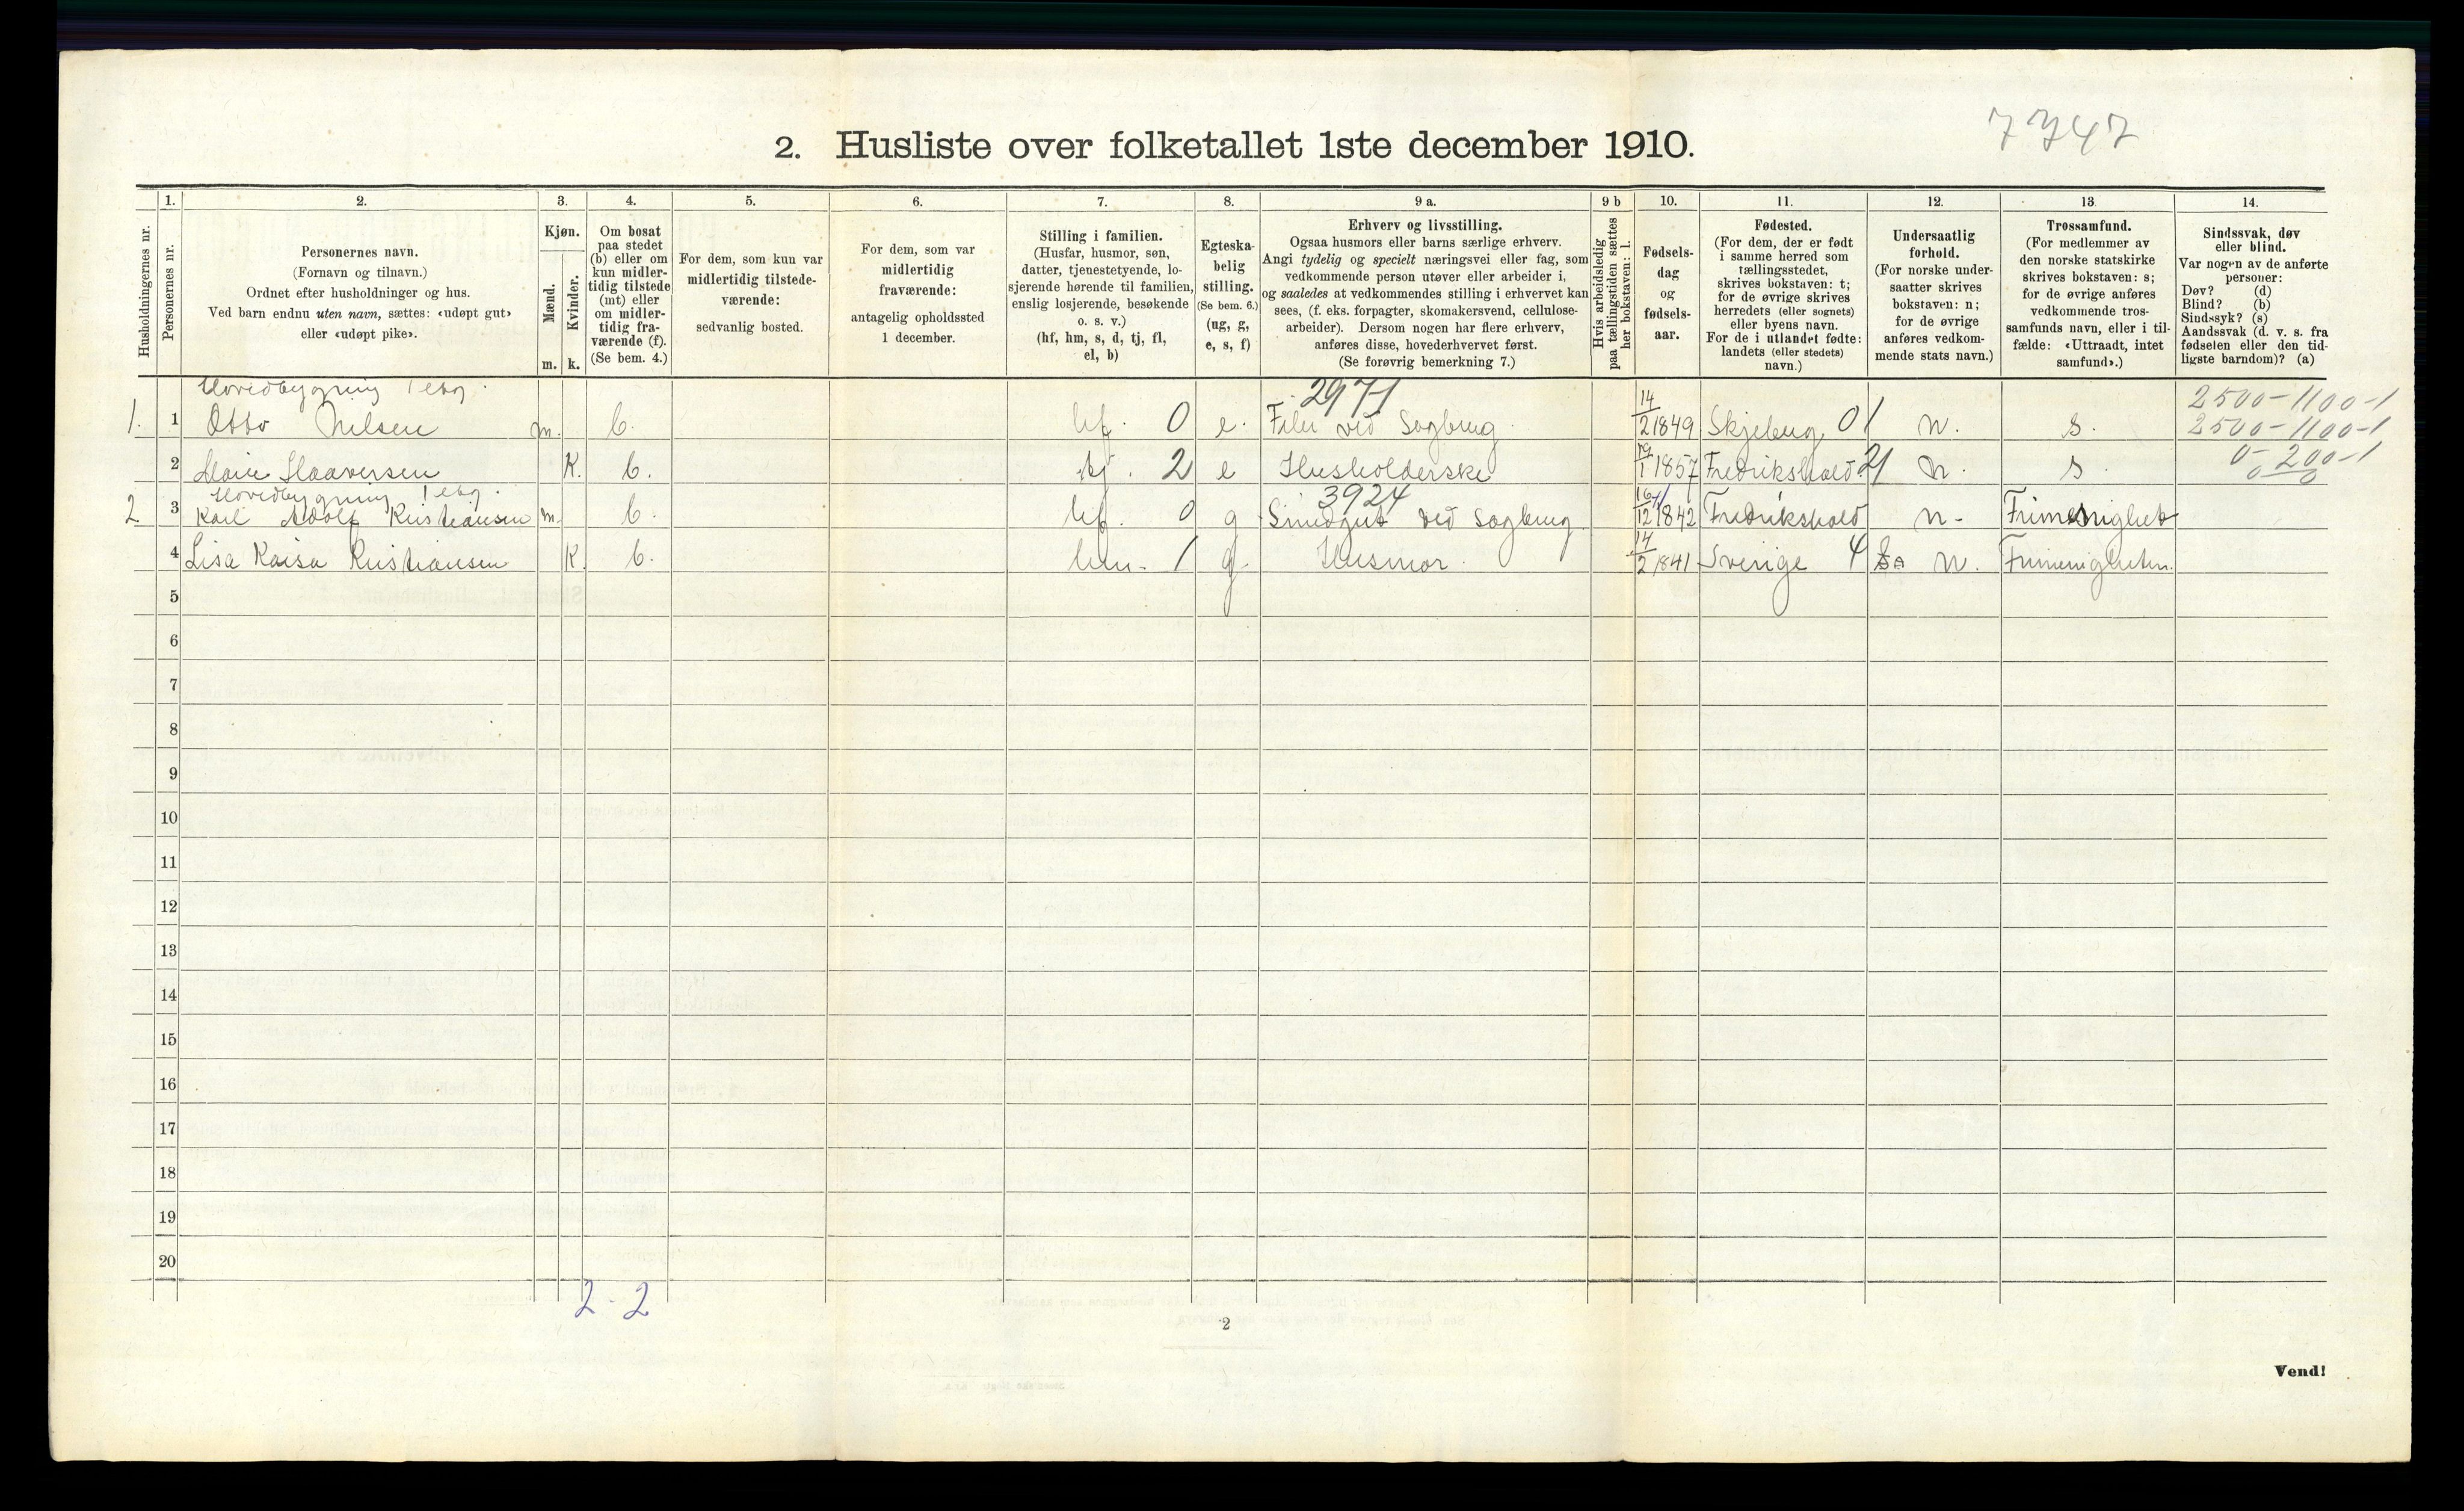 7747
2. Husliste over folketallet 1ste december 1910.
Husholdningernes nr.
1.
Personernes nr.
2.
Personernes navn.
(Fornavn og tilnavn.)
Ordnet efter husholdninger og hus.
Ved barn endnu uten navn, sættes: «udøpt gut»
eller «udøpt pike».
3.
Kjøn.
Mænd.
Kvinder.
m. k.
4.
Om bosat
paa stedet
(b) eller om
kun midler-
tidig tilstede
(mt) eller
om midler-
tidig fra-
værende (f).
(Se bem. 4.)
5.
For dem, som kun var
midlertidig tilstede-
værende:
sedvanlig bosted.
6.
For dem, som var
midlertidig
fraværende:
antagelig opholdssted
1 december.
7.
Stilling i familien.
(Husfar, husmor, søn,
datter, tjenestetyende, lo-
sjerende hørende til familien,
enslig losjerende, besøkende
o. s. v.)
(hf, hm, s, d, tj, fl,
el, b)
8.
Egteska-
belig
stilling.
(Se bem. 6.)
(ug, g,
e, s, f)
9 a.
Erhverv og livsstilling.
Ogsaa husmors eller barns særlige erhverv.
Angi tydelig og specielt næringsvei eller fag, som
vedkommende person utøver eller arbeider i,
og saaledes at vedkommendes stilling i erhvervet kan
sees, (f. eks. forpagter, skomakersvend, cellulose-
arbeider). Dersom nogen har flere erhverv,
anføres disse, hovederhvervet først.
(Se forøvrig bemerkning 7.)
9 b
Hvis arbeidsledig
paa tællingstiden sættes
her bokstaven: l.
10.
Fødsels-
dag
og
fødsels-
aar.
11.
Fødested.
(For dem, der er født
i samme herred som
tællingsstedet,
skrives bokstaven: t;
for de øvrige skrives
herredets (eller sognets)
eller byens navn.
For de i utlandet fødte:
landets (eller stedets)
navn.)
12.
Undersaatlig
forhold.
(For norske under-
saatter skrives
bokstaven: n;
for de øvrige
anføres vedkom-
mende stats navn.)
13
Trossamfund.
(For medlemmer av
den norske statskirke
skrives bokstaven: s;
for de øvrige anføres
vedkommende tros-
samfunds navn, eller i til-
fælde: «Uttraadt, intet
samfund».)
14.
Sindssvak, døv
eller blind.
Var nogen av de anførte
personer:
Døv? (d)
Blind? (b)
Sindssyk? (s)
Aandssvak (d. v. s. fra
fødselen eller den tid-
ligste barndom)? (a)
Hovedbygning 1 etg. 2971 2500-1100-1
1. 1 Otto Nilsen m. b. hf. 0 e. Filer ved Sagbrug 14/2 1849 Skjeberg 01 n. s. 2500-1100-1
2 K. b. tj. 2 e Husholderske 1857 Fredrikshald 21 n. s. 0-200-1
Hovedbygning 1 etg. 3924 0 0
2 3 Karl Adolf Kristiansen m. b. hf. 0 g Smedgut ved Sagbrug 16/12 1842 Fredrikshald n. Frimenighet
4 Lisa Kaisa Kristiansen K. b. hm. 1 g. Husmor. 14/2 1841 Sverige 4 n. Frimenigheten.
5
6
7
8
9
10
11
12
13
14
15
16
17
18
19
20
2-2
2
Vend!